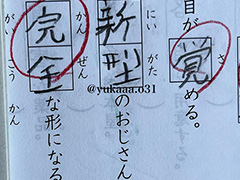 目が覚める。
さ
新型のおじさん
にい がた
完全な形になる
かん ぜん
がい こう かん
@yukaaa.o31